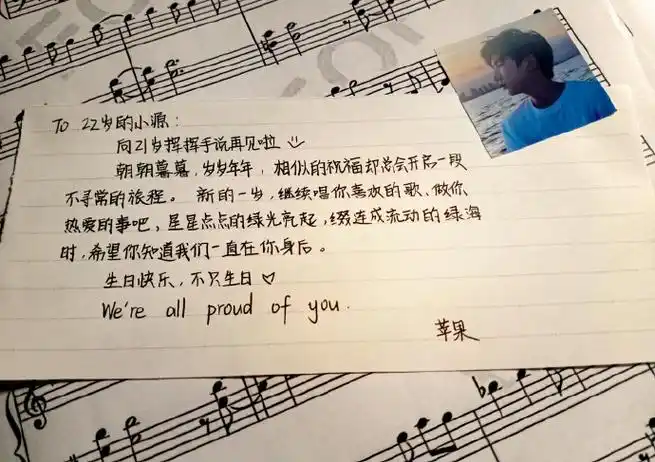 To 22岁的小源：
向21岁挥挥手说再见啦
朝朝暮暮，岁岁年年，相似的祝福却总会开启一段
不寻常的旅程。新的一岁，继续唱你喜欢的歌、做你
热爱的事吧，星星点点的绿光亮起，缀连成流动的绿海
时，希望你知道我们一直在你身后。
生日快乐，不只生日♡
We're all proud of you.
苹果